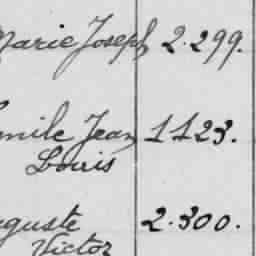 Marie Joseph 2.299.
Emile Jean 1123.
Louis
Auguste 2.300.
Victor